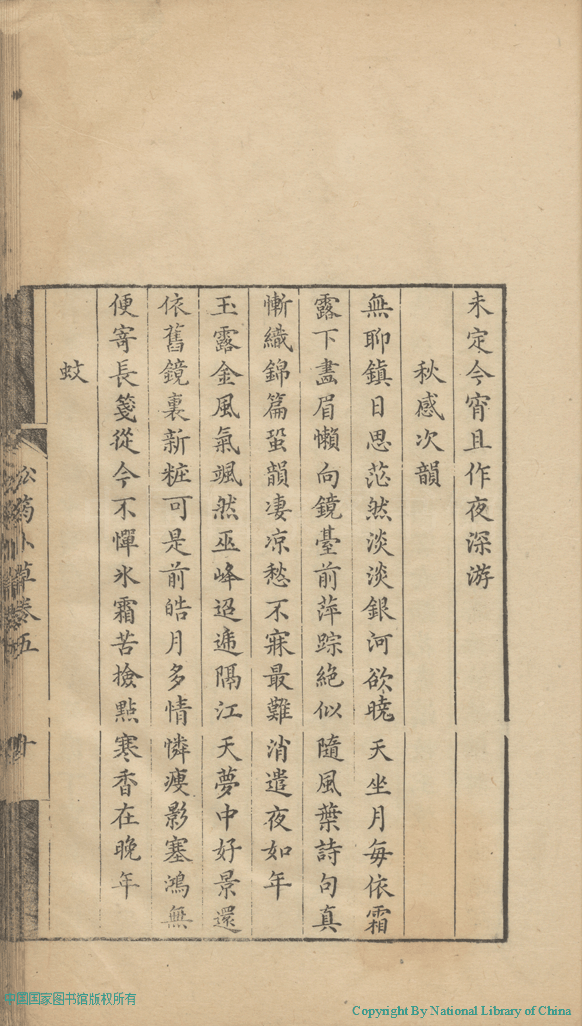 未定今宵且作夜深游
秋感次韻
無聊鎮日思茫然淡淡銀河欲曉天坐月每依霜
露下畫眉懶向鏡臺前萍踪絕似隨風葉詩句真
慚織錦篇蛩韻凄凉愁不寐最難消遣夜如年
玉露金風氣颯然巫峰迢遞隔江天夢中好景還
依舊鏡裏新粧可是前皓月多情憐瘦影塞鴻無
便寄長箋從今不憚氷霜苦撿點寒香在晚年
蚊
草卷五
十
中国国家图书馆版权所有
Copyright By National Library of China